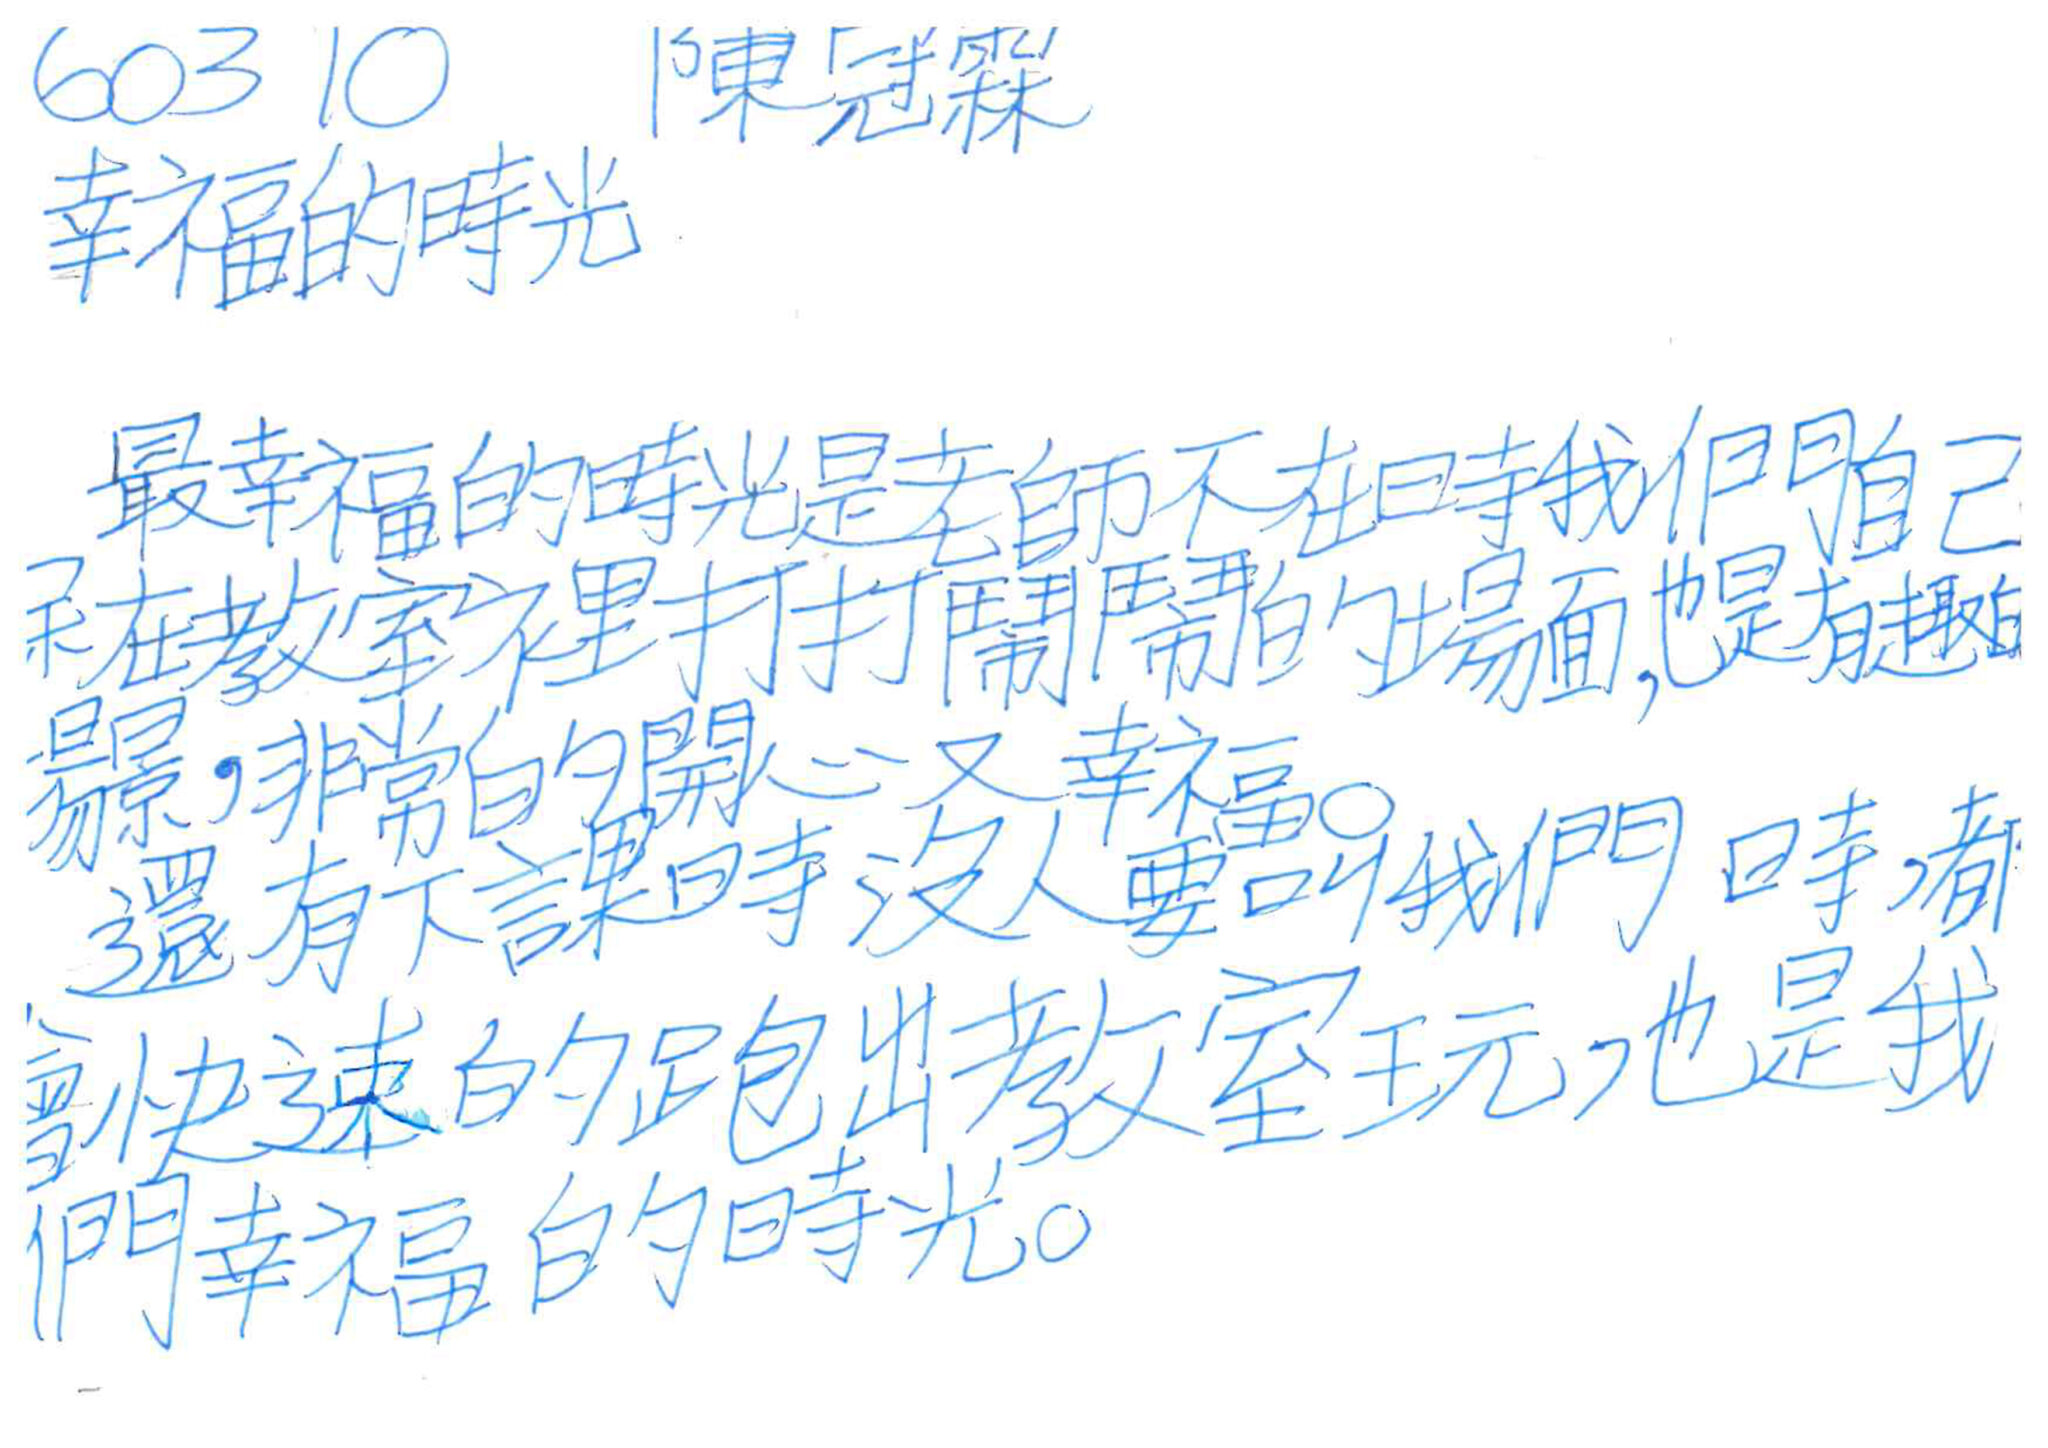 60310 陳冠霖
幸福的時光
最幸福的時光是老師不在時我們自己
在教室裡打打鬧鬧的場面,也是有趣的
景,非常的開心又幸福。
還有下課時沒人要叫我們時,都
會快速的跑出教室玩,也是我
們幸福的時光。